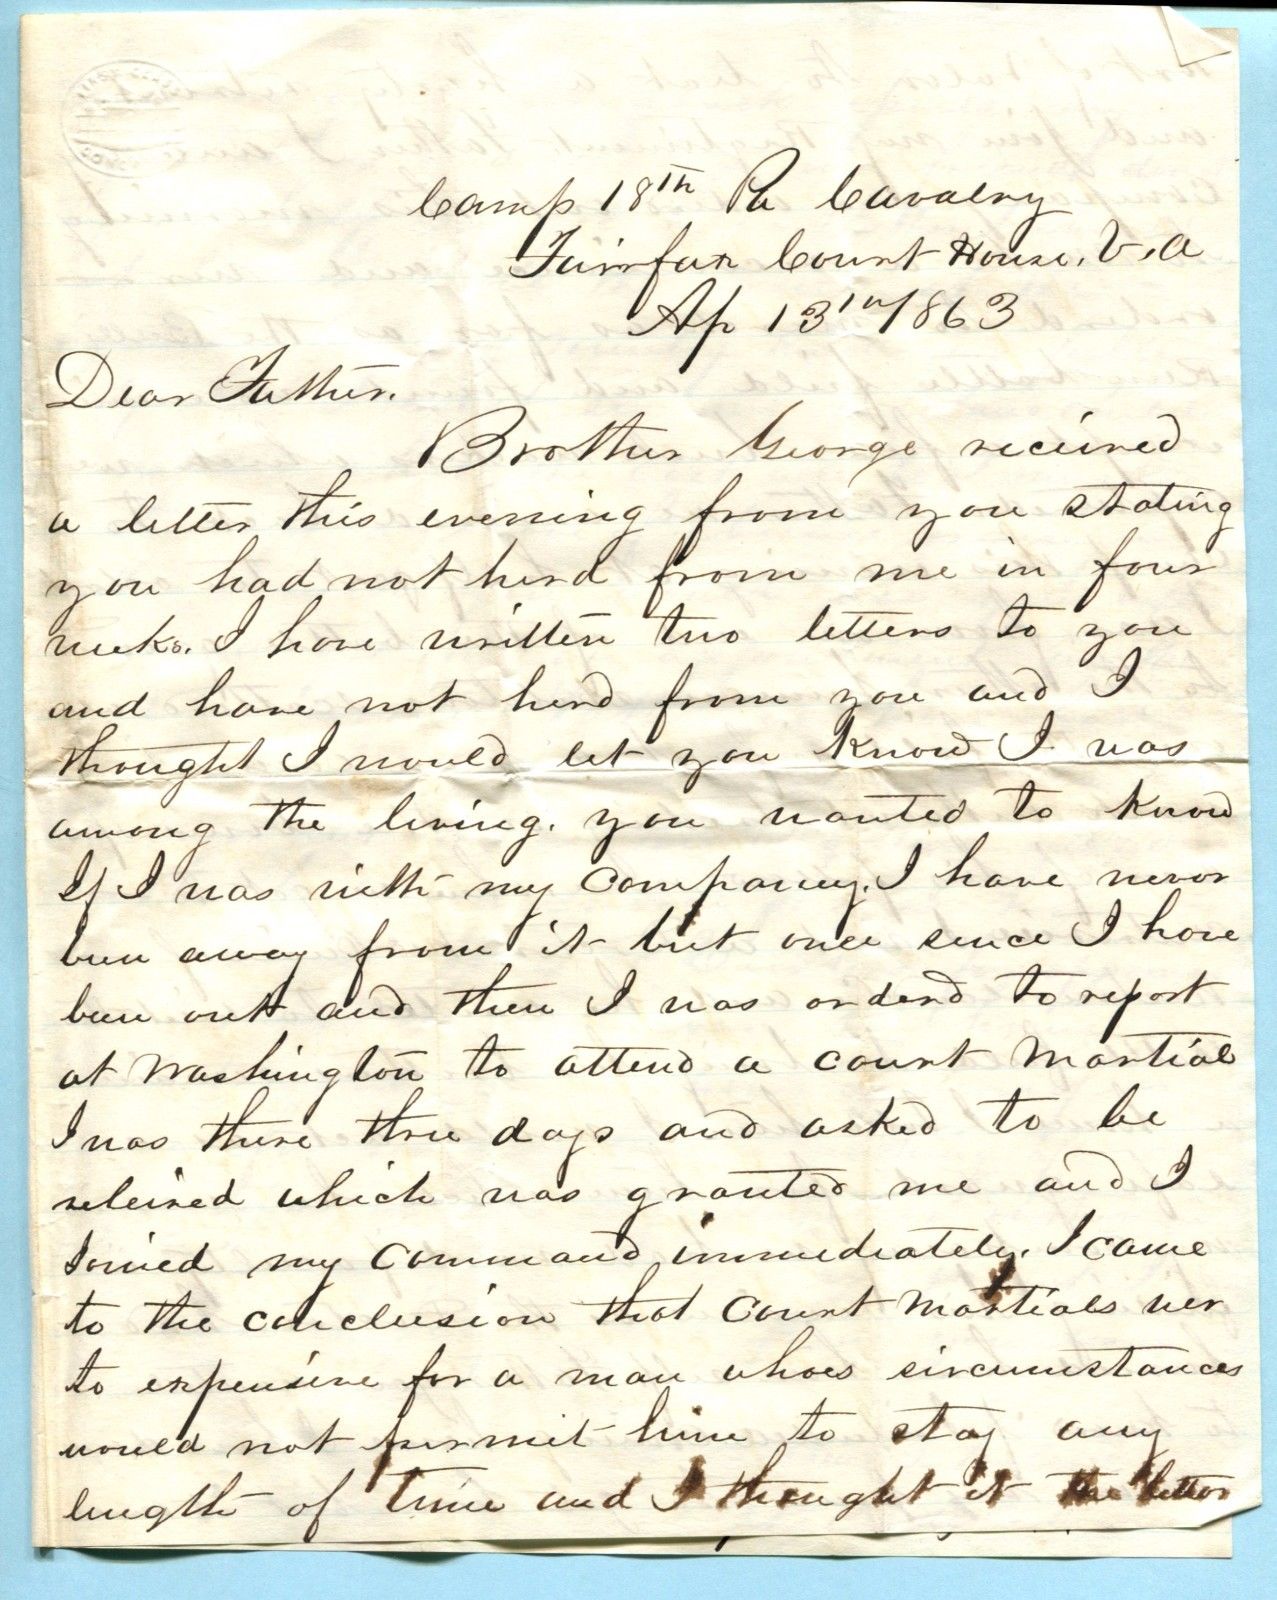 Camp 18th Pa Cavalry
Fairfax Court House, V.A
Ap 13th 1863
Dear Father.
Brother George received
a letter this evening from you stating
you had not herd from me in four
weeks. I have written two letters to you
and have not herd from you and I
thought I would let you know I was
among the living. you wanted to know
If I was with my Company. I have never
been away from it but once since I have
been out and then I was orderd to report
at Washington to attend a court martial
I was there three days and asked to be
releived which was granted me and I
Joined my Command immediately. I came
to the conclusion that Court Martials wer
to expensive for a man whoes circumstances
would not permit him to stay any
length of time and I thought it the better